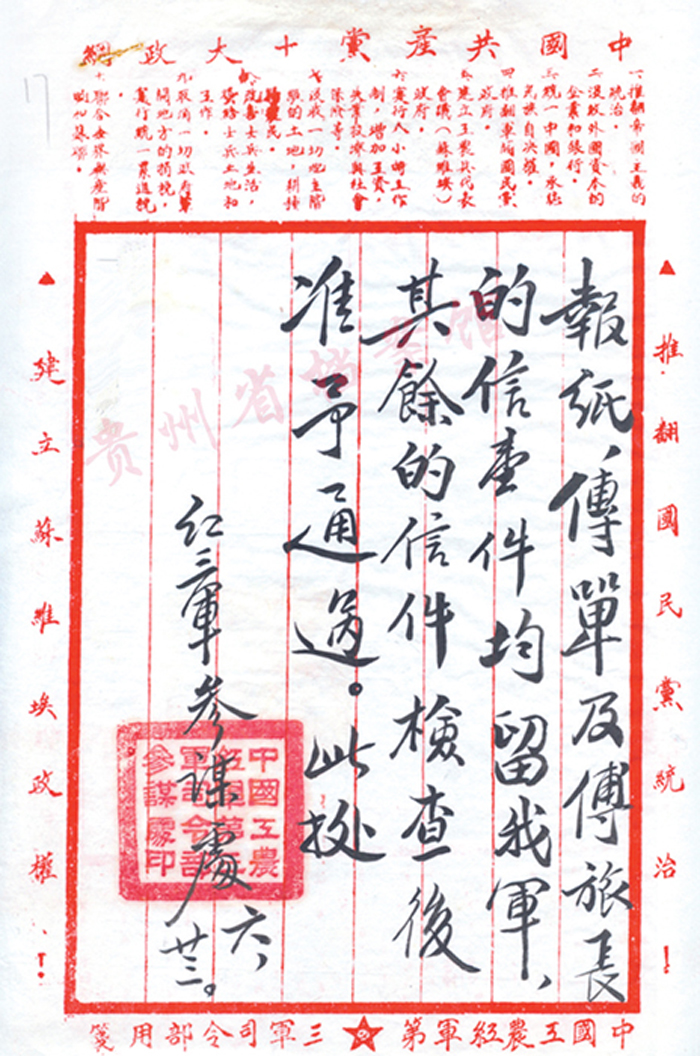 中國共產黨十大政綱
一推翻帝國主義的
統治。
二沒收外國資本的
企業和銀行。
三統一中國，承認
民族自決權。
四推翻軍閥國民黨
政府。
五建立工農兵代表
會議（蘇維埃）
政府。
六實行八小時工作
制，增加工資，
失業救濟與社會
保險等。
七沒收一切地主階
級的土地，耕地
歸農民。
八改善士兵生活，
發給士兵土地和
工作。
九取消一切政府軍
閥地方的捐稅，
實行統一累進稅
。
十聯合世界無產階
級和蘇聯。
▲推翻國民黨統治！
報紙、傳單及傅旅長
的信壹件均留我軍、
其餘的信件檢查後
准予通過。此批
紅三軍參謀處
六、廿三。
中國工農
軍司令部
參謀處印
▲建立蘇維埃政權！
中國工農紅軍第★三軍司令部用箋
贵州省档案馆
17